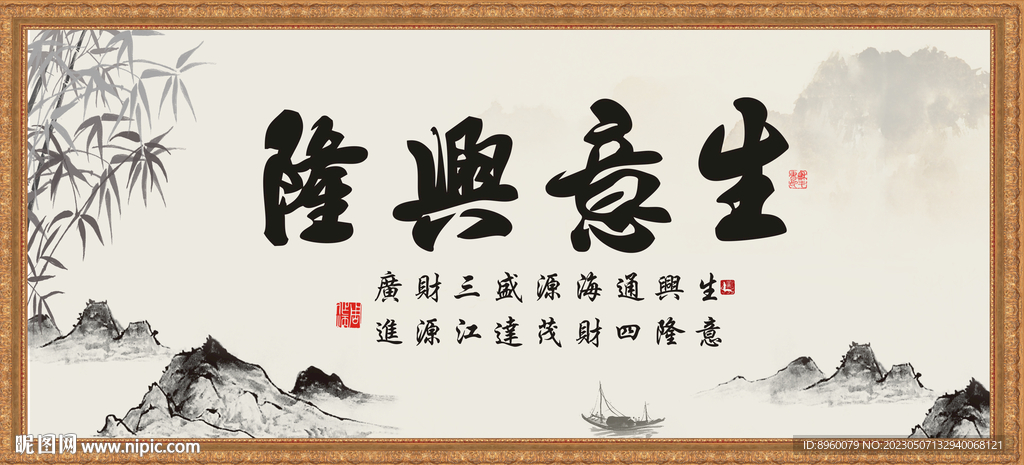 生意興隆
生意
興隆
通四
海財
源茂
盛達
三江
財源
廣進
昵图网 www.nipic.com
ID:8960079 NO:20230507132940068121